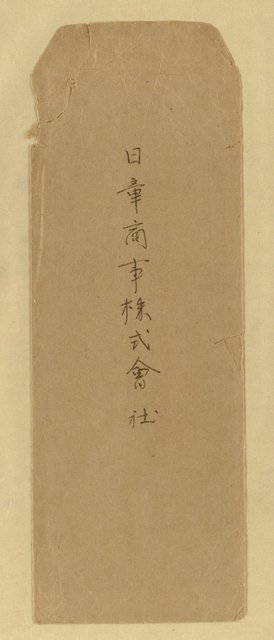 日章商事株式會社